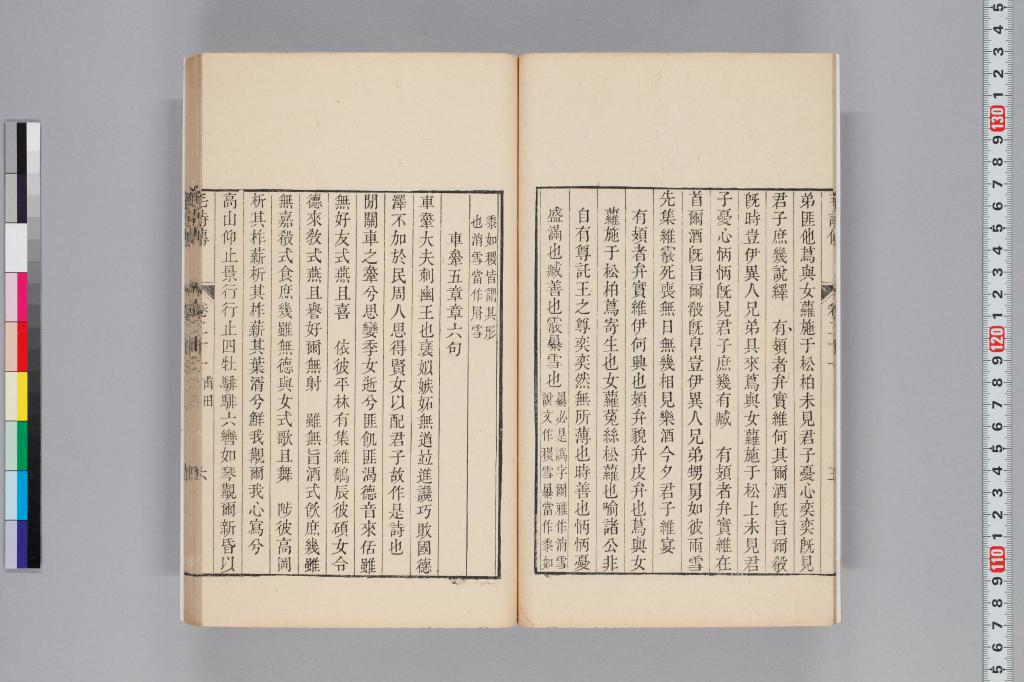 弟匪他蔦與女蘿施于松柏未見君子憂心奕奕旣見
君子庶幾說繹　有頍者弁實維何其爾酒旣旨爾殽
旣時豈伊異人兄弟具來蔦與女蘿施于松上未見君
子憂心怲怲旣見君子庶幾有臧　有頍者弁實維在
首爾酒旣旨爾殽旣阜豈伊異人兄弟甥舅如彼雨雪
先集維霰死喪無日無幾相見樂酒今夕君子維宴
有頍者弁實維伊何興也頍弁貌弁皮弁也蔦與女
蘿施于松柏蔦寄生也女蘿菟絲松蘿也喻諸公非
自有尊託王之尊奕奕然無所薄也時善也怲怲憂
盛滿也臧善也霰暴雪也
暴必是譌字爾雅作消雪
說文作稷雪暴當作黍如
黍如稷皆謂其形
也消雪當作屑雪
車舝五章章六句
車舝大夫刺幽王也襃姒嫉妬無道竝進讒巧敗國德
澤不加於民周人思得賢女以配君子故作是詩也
閒關車之舝兮思孌季女逝兮匪飢匪渴德音來佸雖
無好友式燕且喜　依彼平林有集維鷮辰彼碩女令
德來敎式燕且譽好爾無射　雖無旨酒式飮庶幾雖
無嘉殽式食庶幾雖無德與女式歌且舞　陟彼高岡
析其柞薪析其柞薪其葉湑兮鮮我覯爾我心寫兮
高山仰止景行行止四牡騑騑六轡如琴覯爾新昏以
毛詩傳　卷二十一　甫田　六